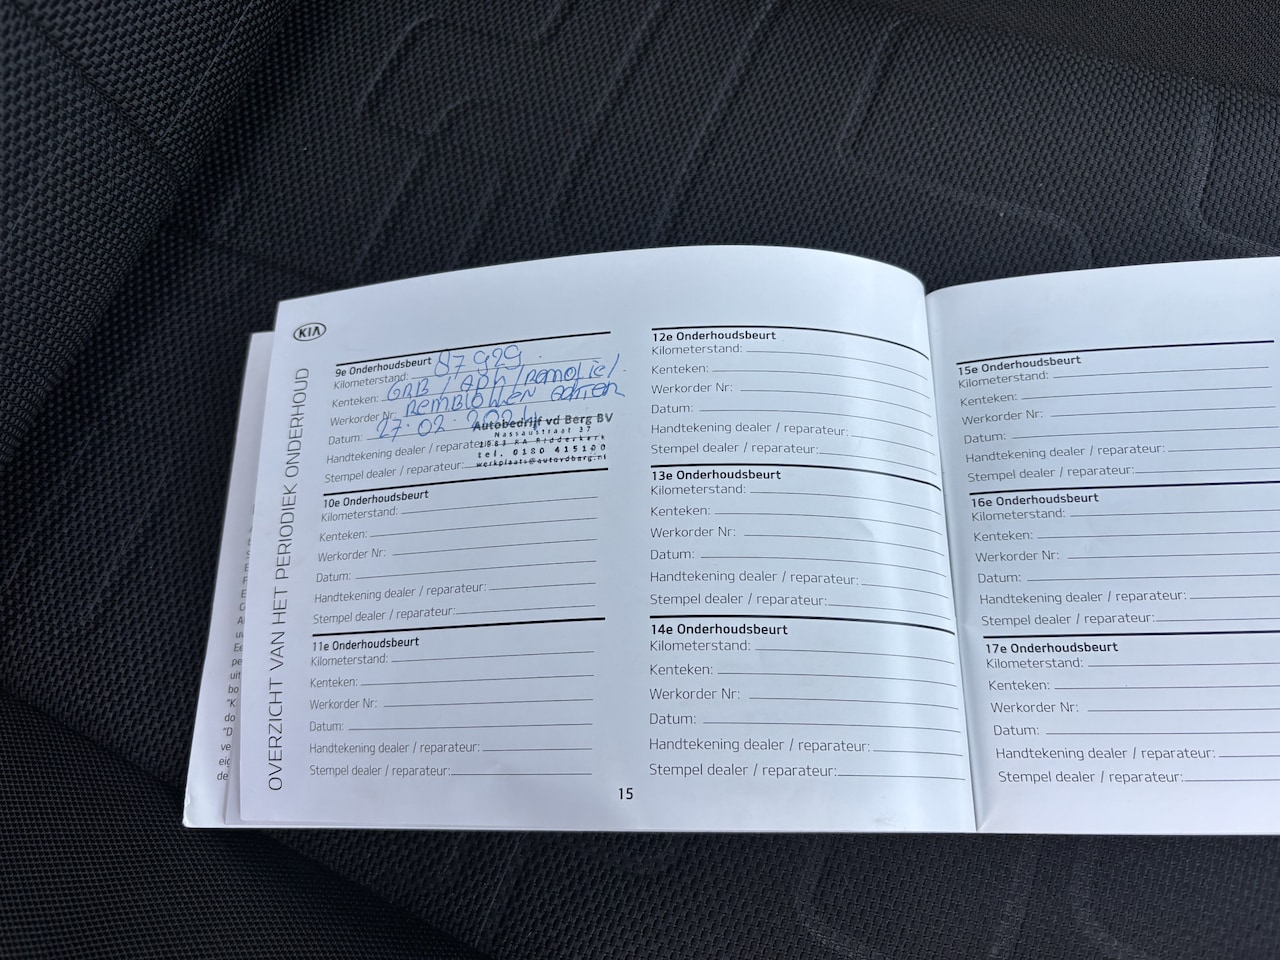 KIA
OVERZICHT VAN HET PERIODIEK ONDERHOUD
9e Onderhoudsbeurt
Kilometerstand: 87929.
Kenteken: GRB / APK / Remolie/.
Werkorder Nr: Remblokken achter
Datum: 27.02.2024
Handtekening dealer / reparateur:
Stempel dealer / reparateur:
Autobedrijf vd Berg BV
Nassaustraat 37
2983 RA Ridderkerk
tel. 0180 415100
werkplaats@autovdberg.nl
10e Onderhoudsbeurt
Kilometerstand:
Kenteken:
Werkorder Nr:
Datum:
Handtekening dealer / reparateur:
Stempel dealer / reparateur:
11e Onderhoudsbeurt
Kilometerstand:
Kenteken:
Werkorder Nr:
Datum:
Handtekening dealer / reparateur:
Stempel dealer / reparateur:
12e Onderhoudsbeurt
Kilometerstand:
Kenteken:
Werkorder Nr:
Datum:
Handtekening dealer / reparateur:
Stempel dealer / reparateur:
13e Onderhoudsbeurt
Kilometerstand:
Kenteken:
Werkorder Nr:
Datum:
Handtekening dealer / reparateur:
Stempel dealer / reparateur:
14e Onderhoudsbeurt
Kilometerstand:
Kenteken:
Werkorder Nr:
Datum:
Handtekening dealer / reparateur:
Stempel dealer / reparateur:
15
15e Onderhoudsbeurt
Kilometerstand:
Kenteken:
Werkorder Nr:
Datum:
Handtekening dealer / reparateur:
Stempel dealer / reparateur:
16e Onderhoudsbeurt
Kilometerstand:
Kenteken:
Werkorder Nr:
Datum:
Handtekening dealer / reparateur:
Stempel dealer / reparateur:
17e Onderhoudsbeurt
Kilometerstand:
Kenteken:
Werkorder Nr:
Datum:
Handtekening dealer / reparateur:
Stempel dealer / reparateur: